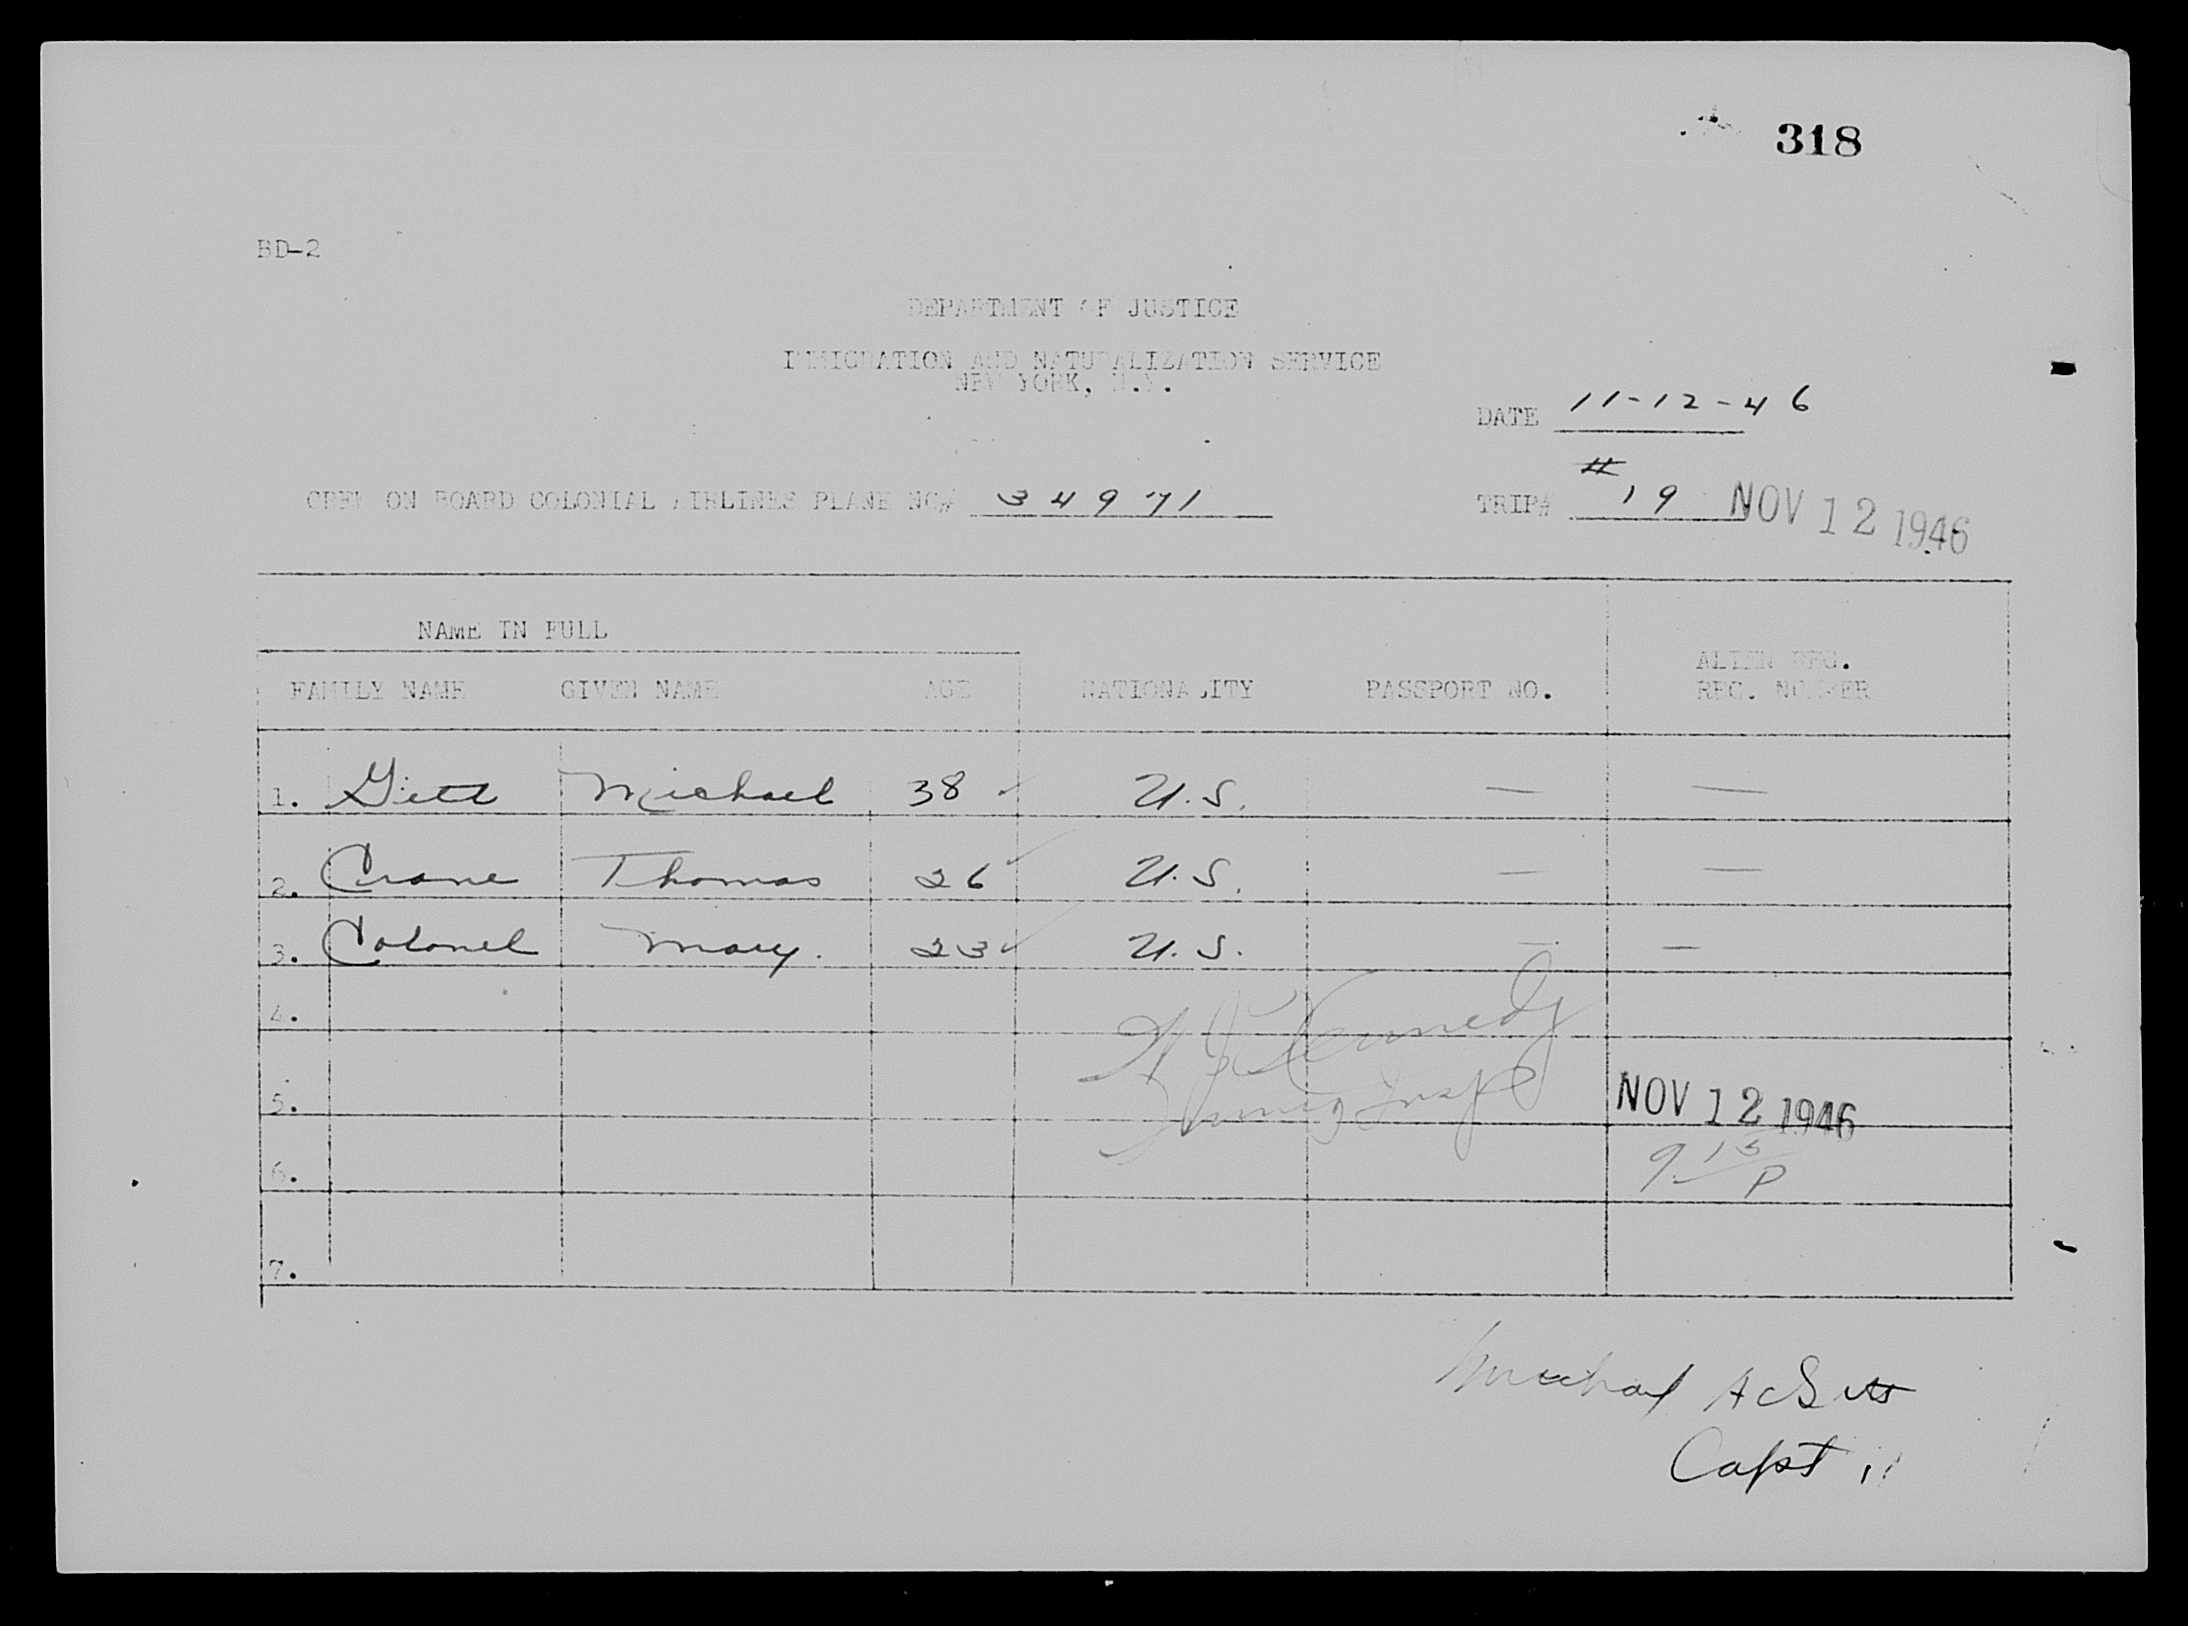 318
BD-2
DEPARTMENT OF JUSTICE
IMMIGRATION AND NATURALIZATION SERVICE
NEW YORK, N.Y.
DATE 11-12-46
CREW ON BOARD COLONIAL AIRLINES PLANE NO# 34971 TRIP# #19 NOV 12 1946
NAME IN FULL
FAMILY NAME GIVEN NAME AGE NATIONALITY PASSPORT NO. ALIEN REG.
REC. NUMBER
1. Gitt Michael 38 ✓ U.S. — —
2. Crane Thomas 26 ✓ U.S. — —
3. Colonel Mary. 23 ✓ U.S. — —
4. Kennedy
5. Immig Insp NOV 12 1946
6. 9 15 P
7.
Michael A Gitt
Capt